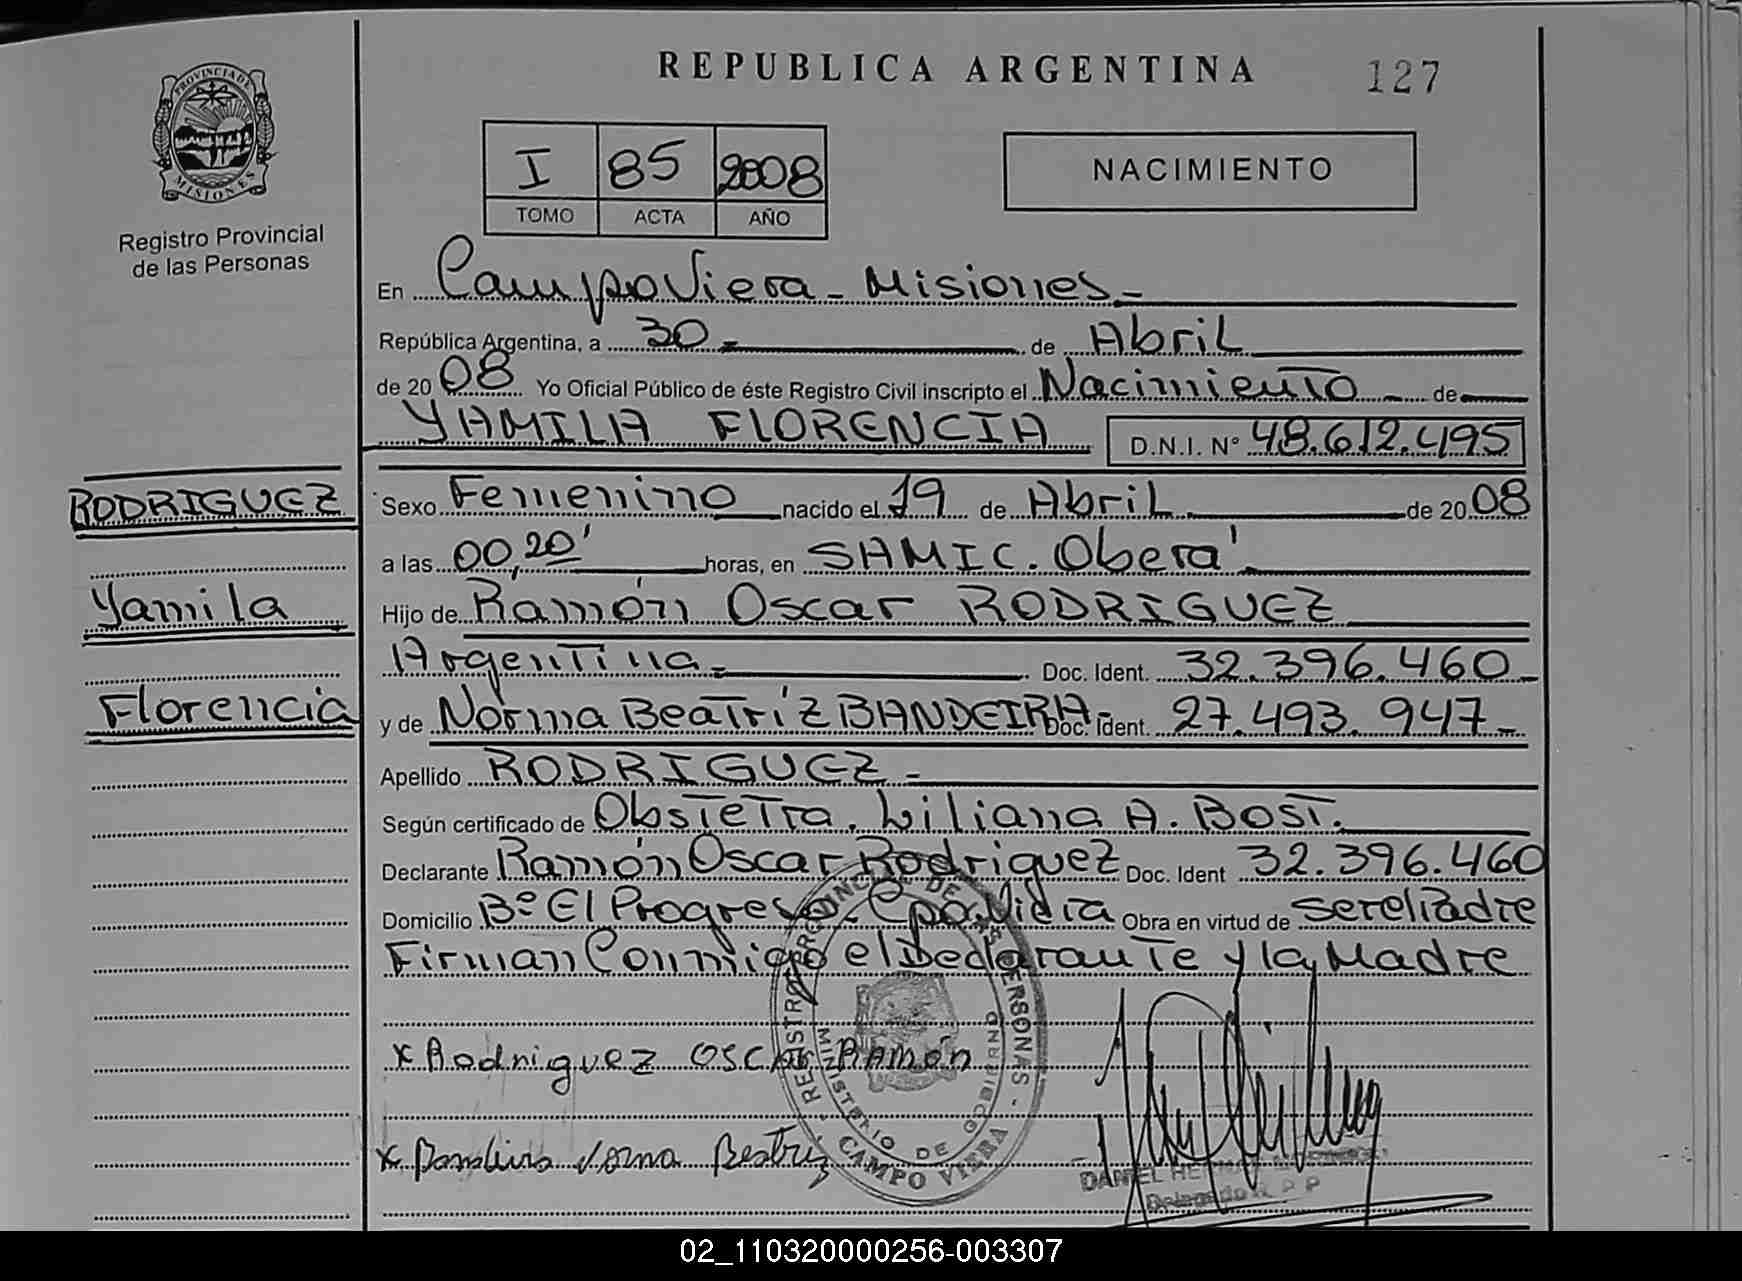 REPUBLICA ARGENTINA 127
PROVINCIA DE MISIONES
Registro Provincial
de las Personas
I 85 2008
TOMO ACTA AÑO
NACIMIENTO
En Campo Viera - Misiones -
República Argentina, a 30 - de Abril
de 2008 Yo Oficial Público de éste Registro Civil inscripto el Nacimiento - de
YAMILA FLORENCIA D.N.I. N° 48.612.495
RODRIGUEZ
Yamila
Florencia
Sexo Femenino nacido el 19 de Abril de 2008
a las 00,20' horas, en SAMIC. Oberá
Hijo de Ramón Oscar RODRIGUEZ
Argentina - Doc. Ident. 32.396.460 -
y de Norma Beatríz BANDEIRA - Doc. Ident. 27.493.947 -
Apellido RODRIGUEZ -
Según certificado de Obstetra. Liliana A. Bost.
Declarante Ramón Oscar Rodriguez Doc. Ident 32.396.460
Domicilio B° El Progreso. Obra en virtud de ser el Padre
Firman Conmigo el Declarante y la Madre
x Rodriguez OSCAR RAMón
x Bandeira Norma Beatriz
REGISTRO PROVINCIAL DE LAS PERSONAS - CAMPO VIERA -
MINISTERIO DE GOBIERNO
DANIEL
Delegado R. P. P
02_110320000256-003307